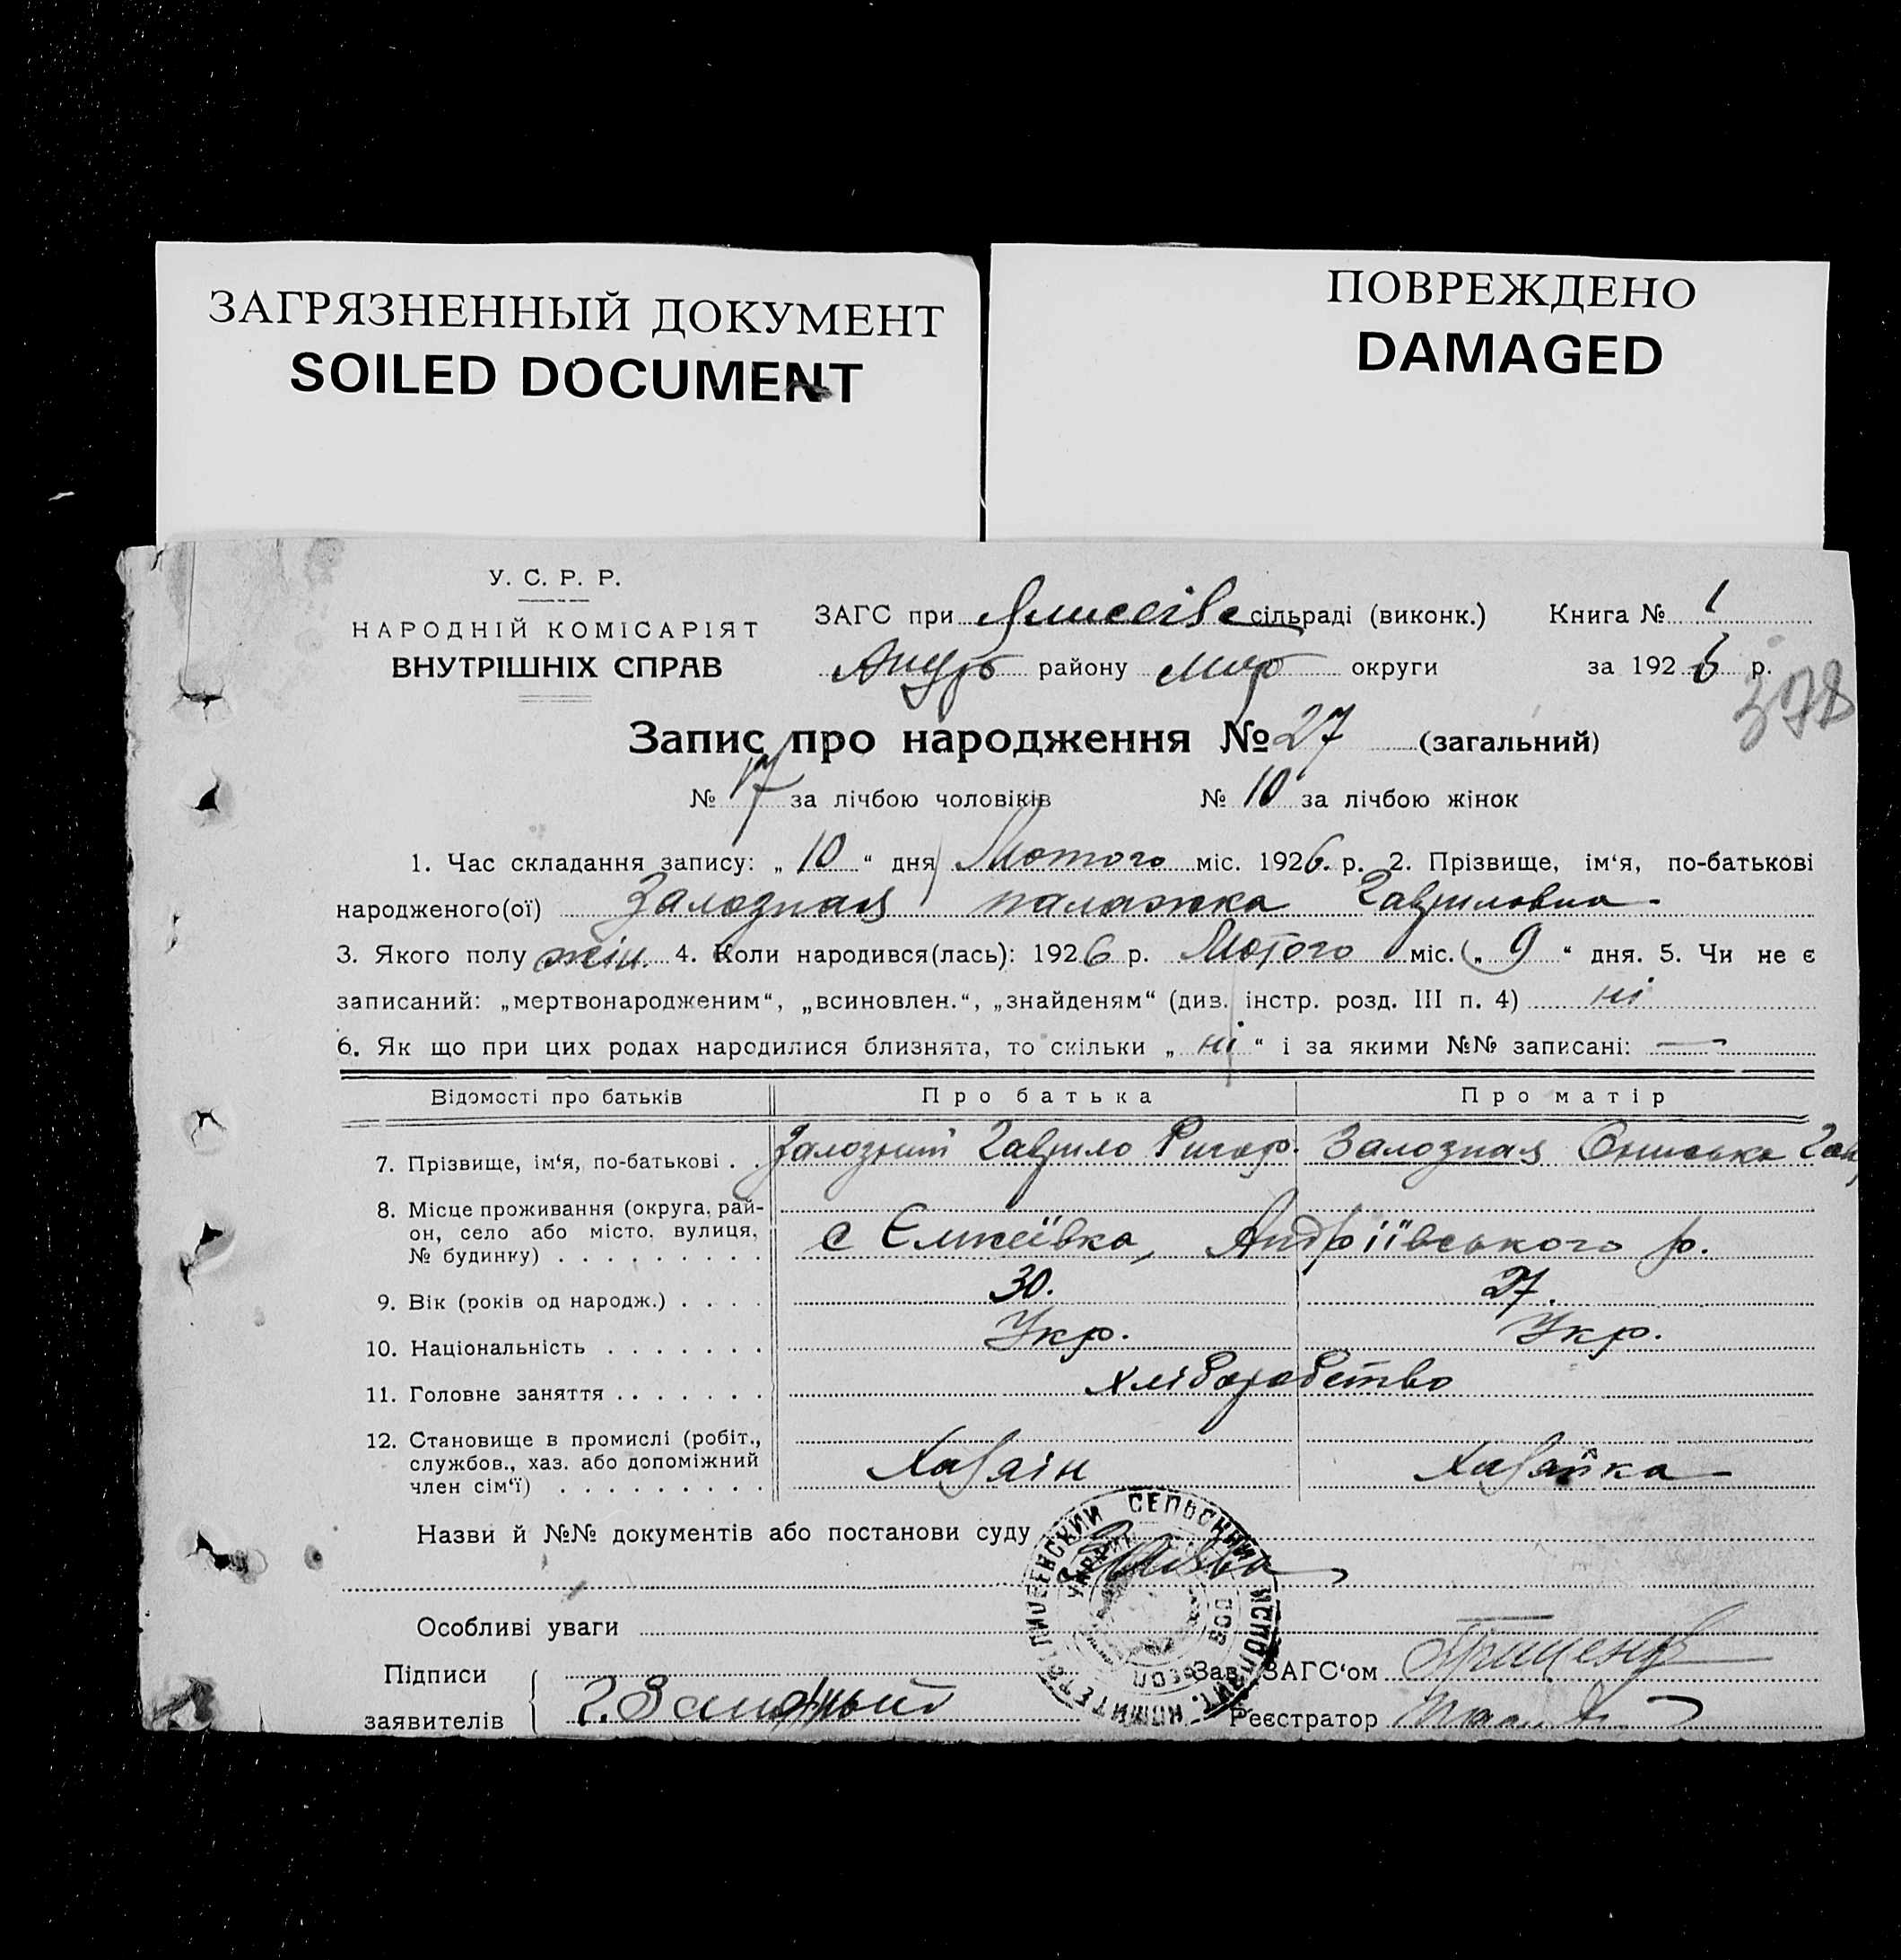 ЗАГРЯЗНЕННЫЙ ДОКУМЕНТ
SOILED DOCUMENT
ПОВРЕЖДЕНО
DAMAGED
У. С. Р. Р.
НАРОДНІЙ КОМІСАРІЯТ
ВНУТРІШНІХ СПРАВ
ЗАГС при сільраді (виконк.) Книга № 1
району округи за 1926 р.
378
Запис про народження № 27 (загальний)
№ 17 за лічбою чоловіків № 10 за лічбою жінок
1. Час складання запису: „ 10 “ дня Лютого міс. 1926. р. 2. Прізвище, ім‘я, по-батькові
народженого(ої) Залозная палажка Гавриловна.
3. Якого полу жін. 4. Коли народився(лась): 1926 р. Лютого міс. „ 9 “ дня. 5. Чи не є
записаний: „мертвонародженим“, „всиновлен.“, „знайденям“ (див. інстр. розд. III п. 4) ні
6. Як що при цих родах народилися близнята, то скільки „ ні “ і за якими №№ записані: —
Відомості про батьків Про батька Про матір
7. Прізвище, ім‘я, по-батькові . . Залозний Гаврило Залозная
8. Місце проживання (округа, рай-
он, село або місто, вулиця,
№ будинку) . . . . . . . . . с Андріївського р.
9. Вік (років од народж.) . . . . 30. 27.
10. Національність . . . . . . . Укр. Укр.
11. Головне заняття . . . . . . . хліборобство
12. Становище в промислі (робіт.,
службов., хаз. або допоміжний
член сім‘ї) . . . . . . . . . Хазаін Хазайка
Назви й №№ документів або постанови суду
Особливі уваги
Підписи Зав. ЗАГС‘ом
заявителів Г. Залозный Реєстратор
СЕЛЬСКИЙ ИСПОЛНИТ. КОМИТЕТ